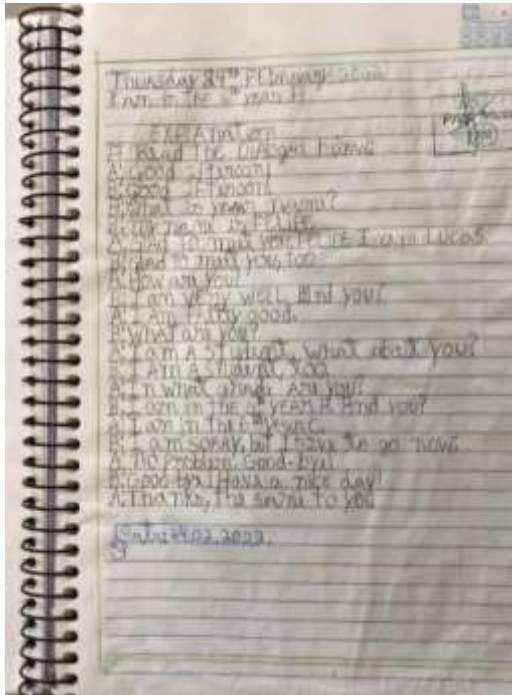 Thursday 24th February 2022
I am in the 6th year
EXPLANATION
Read the
A: Good afternoon!
B: Good afternoon!
A: What is your name?
B: My name is FELIPE
A: Glad to meet you, FELIPE I am Lucas.
B: Glad to meet you, too
A: How are you?
B: I am very well. And you?
A: I Am very good.
B: What are you?
A: I am A student, what about you?
B: I Am A student too.
A: In what grade Are you?
B: I am in the 6th YEAR B And you?
A: I am in the 6th year C.
B: I am sorry, but I have to go now.
A: No problem. Good-bye!
B: Good bye! Have a nice day!
A. Thanks, the same to you
24.02.2022.